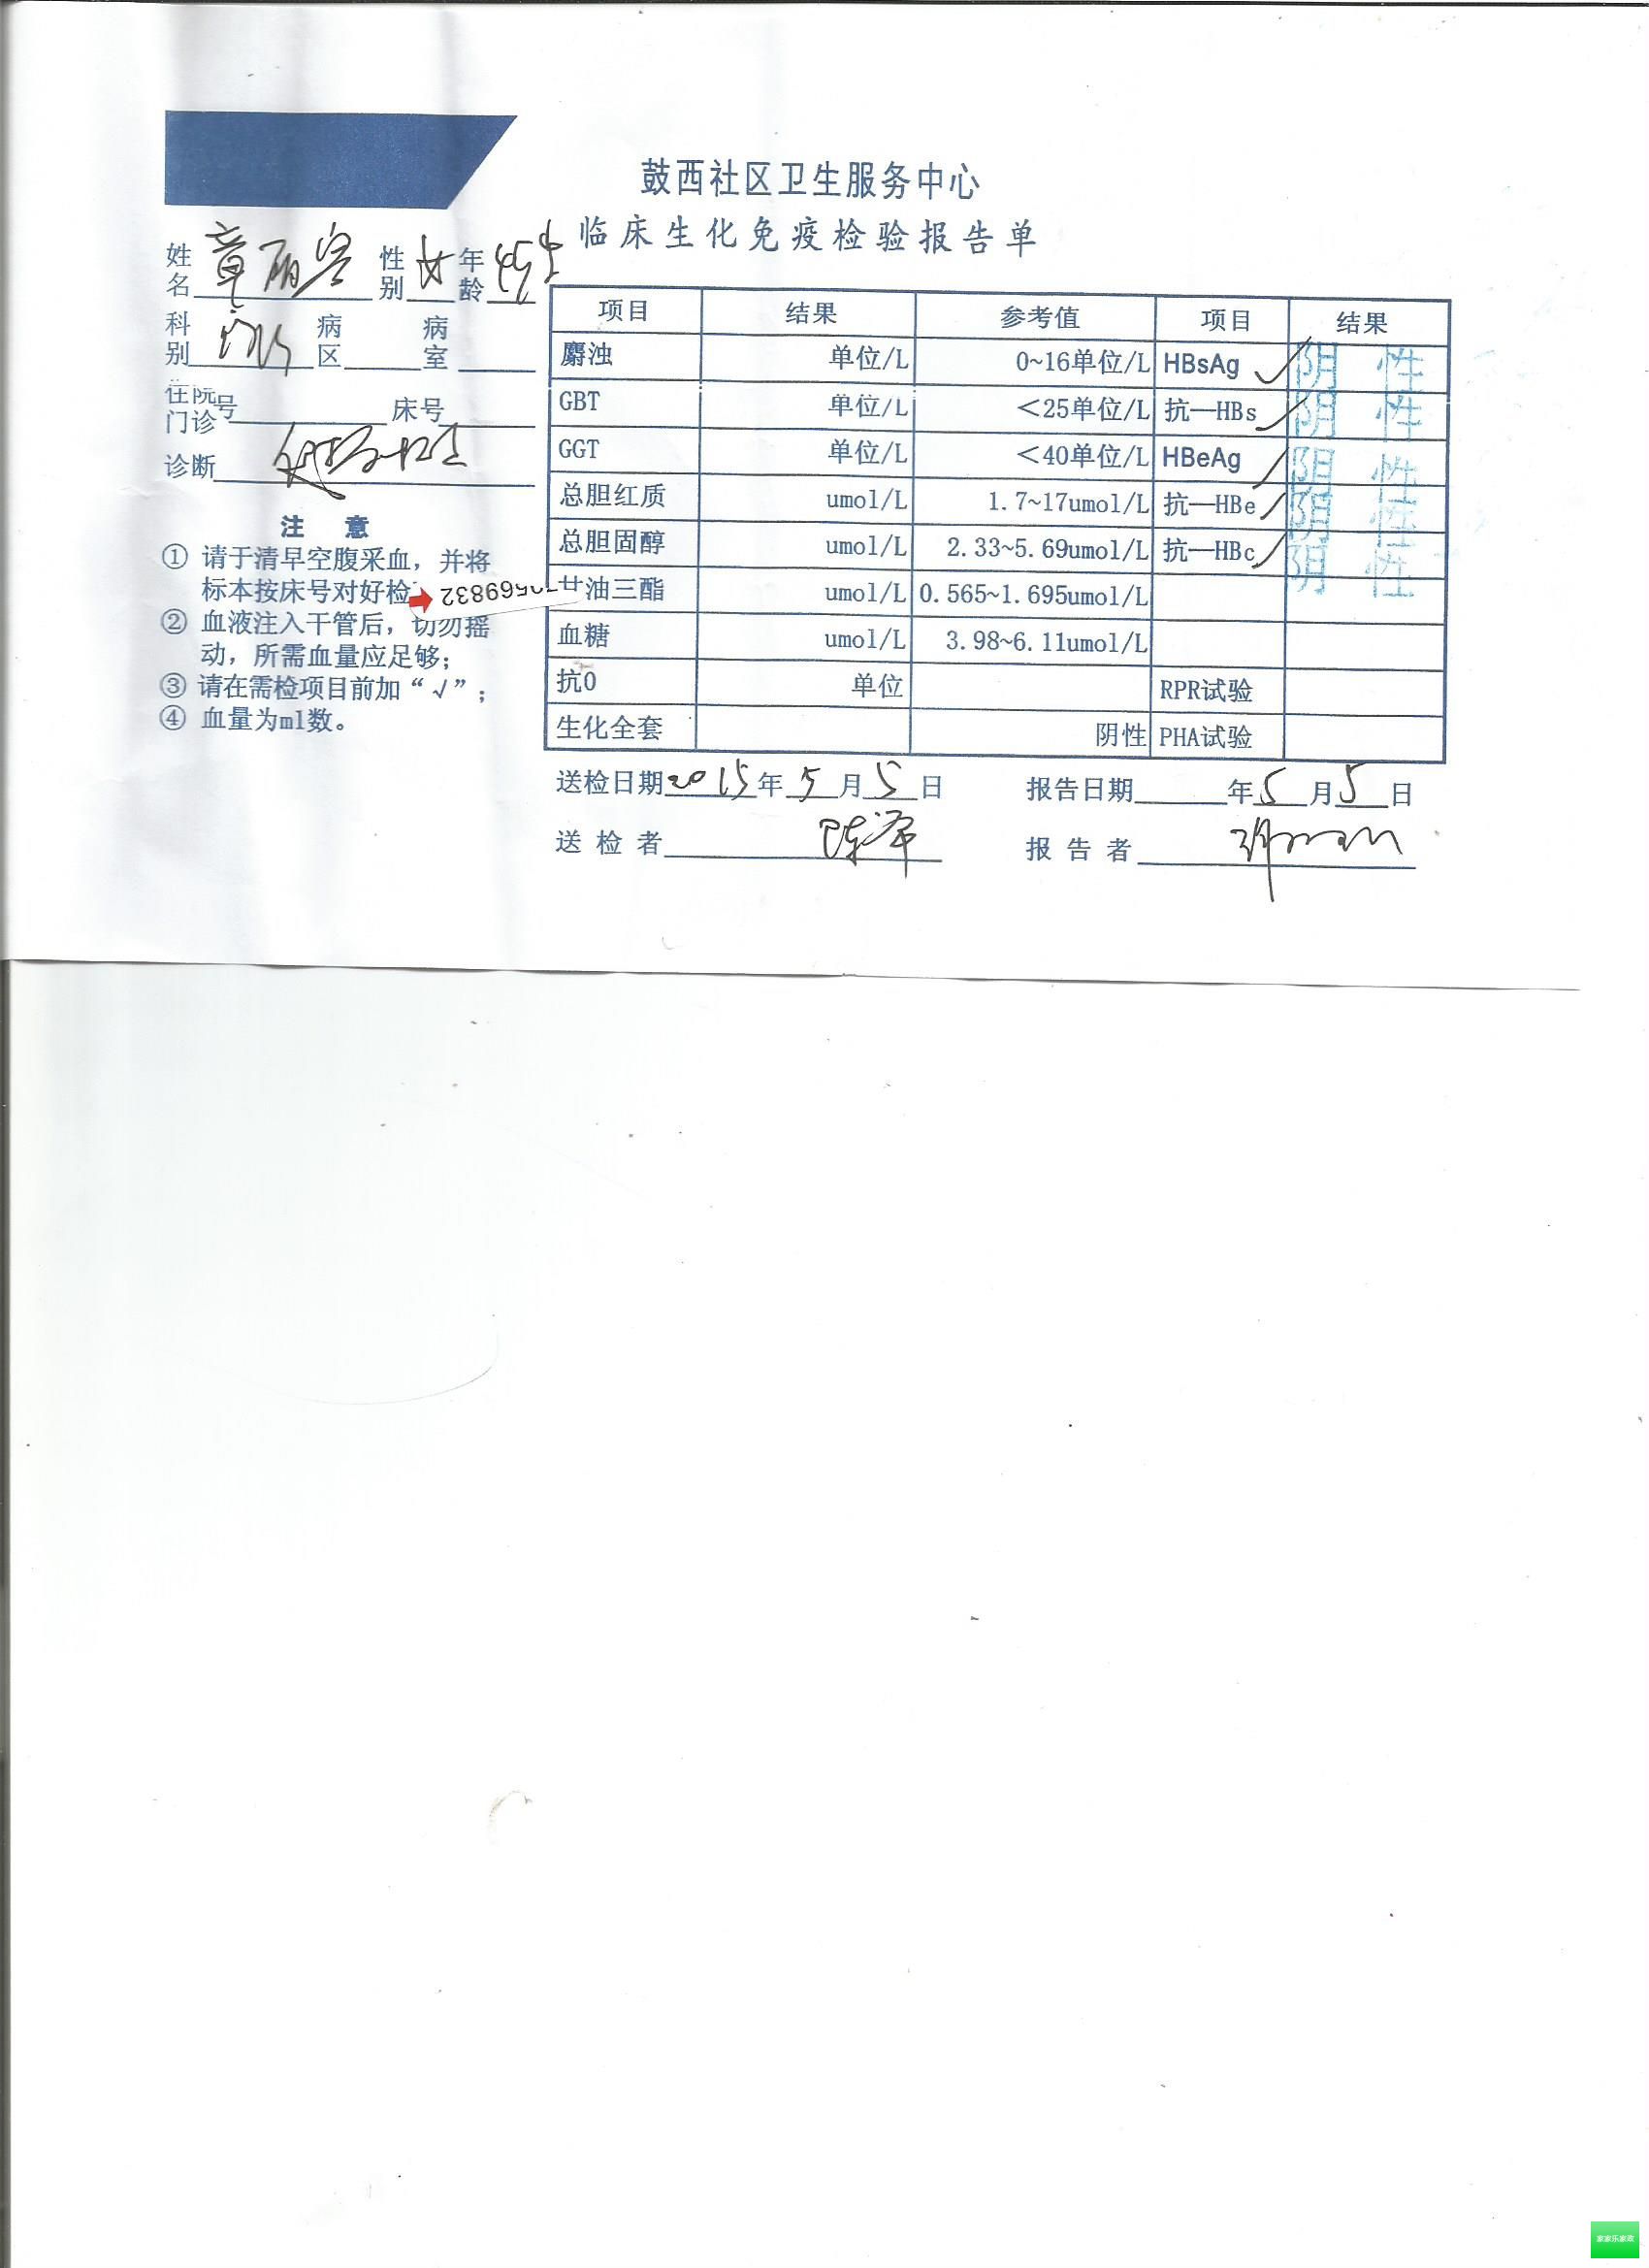 鼓西社区卫生服务中心
临床生化免疫检验报告单
姓名 章丽容 性别 女 年龄
科别 病区 病室
住院门诊号 床号
诊断
注 意
① 请于清早空腹采血，并将
标本按床号对好检
② 血液注入干管后，切勿摇
动，所需血量应足够；
③ 请在需检项目前加“√”；
④ 血量为ml数。
569832
项目 结果 参考值 项目 结果
麝浊 单位/L 0~16单位/L HBsAg ✓ 阴 性
GBT 单位/L <25单位/L 抗—HBs ✓ 阴 性
GGT 单位/L <40单位/L HBeAg ✓ 阴 性
总胆红质 umol/L 1.7~17umol/L 抗—HBe ✓ 阴 性
总胆固醇 umol/L 2.33~5.69umol/L 抗—HBc ✓ 阴 性
甘油三酯 umol/L 0.565~1.695umol/L
血糖 umol/L 3.98~6.11umol/L
抗O 单位 RPR试验
生化全套 阴性 PHA试验
送检日期 2015 年 5 月 5 日 报告日期 年 5 月 5 日
送检者 报告者
家家乐家政